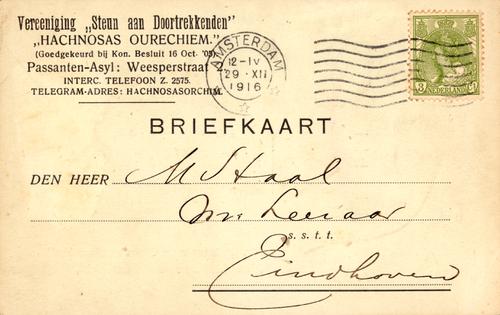 Vereeniging „Steun aan Doortrekkenden"
„HACHNOSAS OURECHIEM."
(Goedgekeurd bij Kon. Besluit 16 Oct. '05)
Passanten-Asyl: Weesperstraat
INTERC. TELEFOON Z. 2575.
TELEGRAM-ADRES: HACHNOSASORCHIM
AMSTERDAM
12-IV
29 · XII
1916
3
NEDERLAND
BRIEFKAART
DEN HEER M Staal
Leeraar
s. s. t. t.
Eindhoven